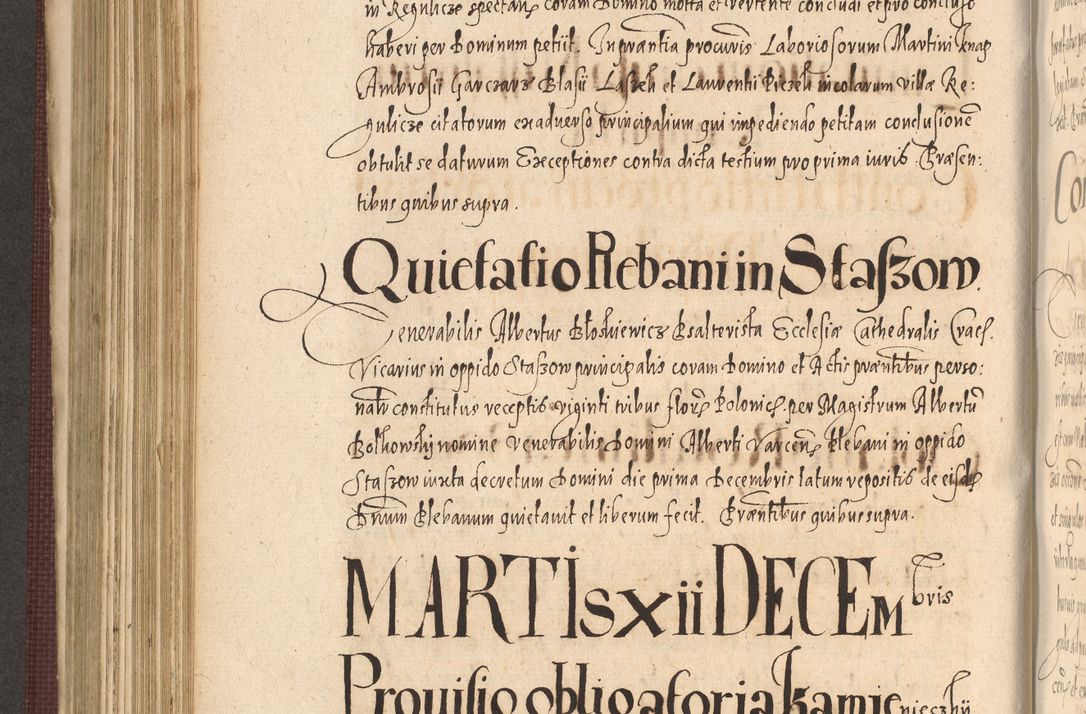 in Regulicze spectan coram Domino mota et vertente concludi et pro concluso
haberi per Dominum petiit. In præntia procuris Laboriosorum Martini knap
Ambrosii Garczarz Blasii Laszeli et Laurentii incolarum villæ Re:
gulicze citatorum ex aduerso principalium qui impediendo petitam conclusionē
obtulit se daturum Exceptiones contra dicta testium pro prima iuris Præsen:
tibus quibus supra.
Quietatio Plebani in Staszow.
Venerabilis Albertus Psalterista Ecclesiæ Cathedralis Crac.
Vicarius in oppido Staszow principalis coram Domino et Actis præntibus perso:
nalr constitutus receptis viginti tribus flor Polonic. per Magistrum Albertū
Bolkowski nomine venerabilis Domini Alberti Varcen Plebani in oppido
Staszow iuxta decretum Domini die prima Decembris latum repositis de eisde
Dnum Plebanum quietauit et liberum fecit. Præntibus quibus supra.
MARTIS xii DECEMbris
Prouisio obligatoria kamienieczkii